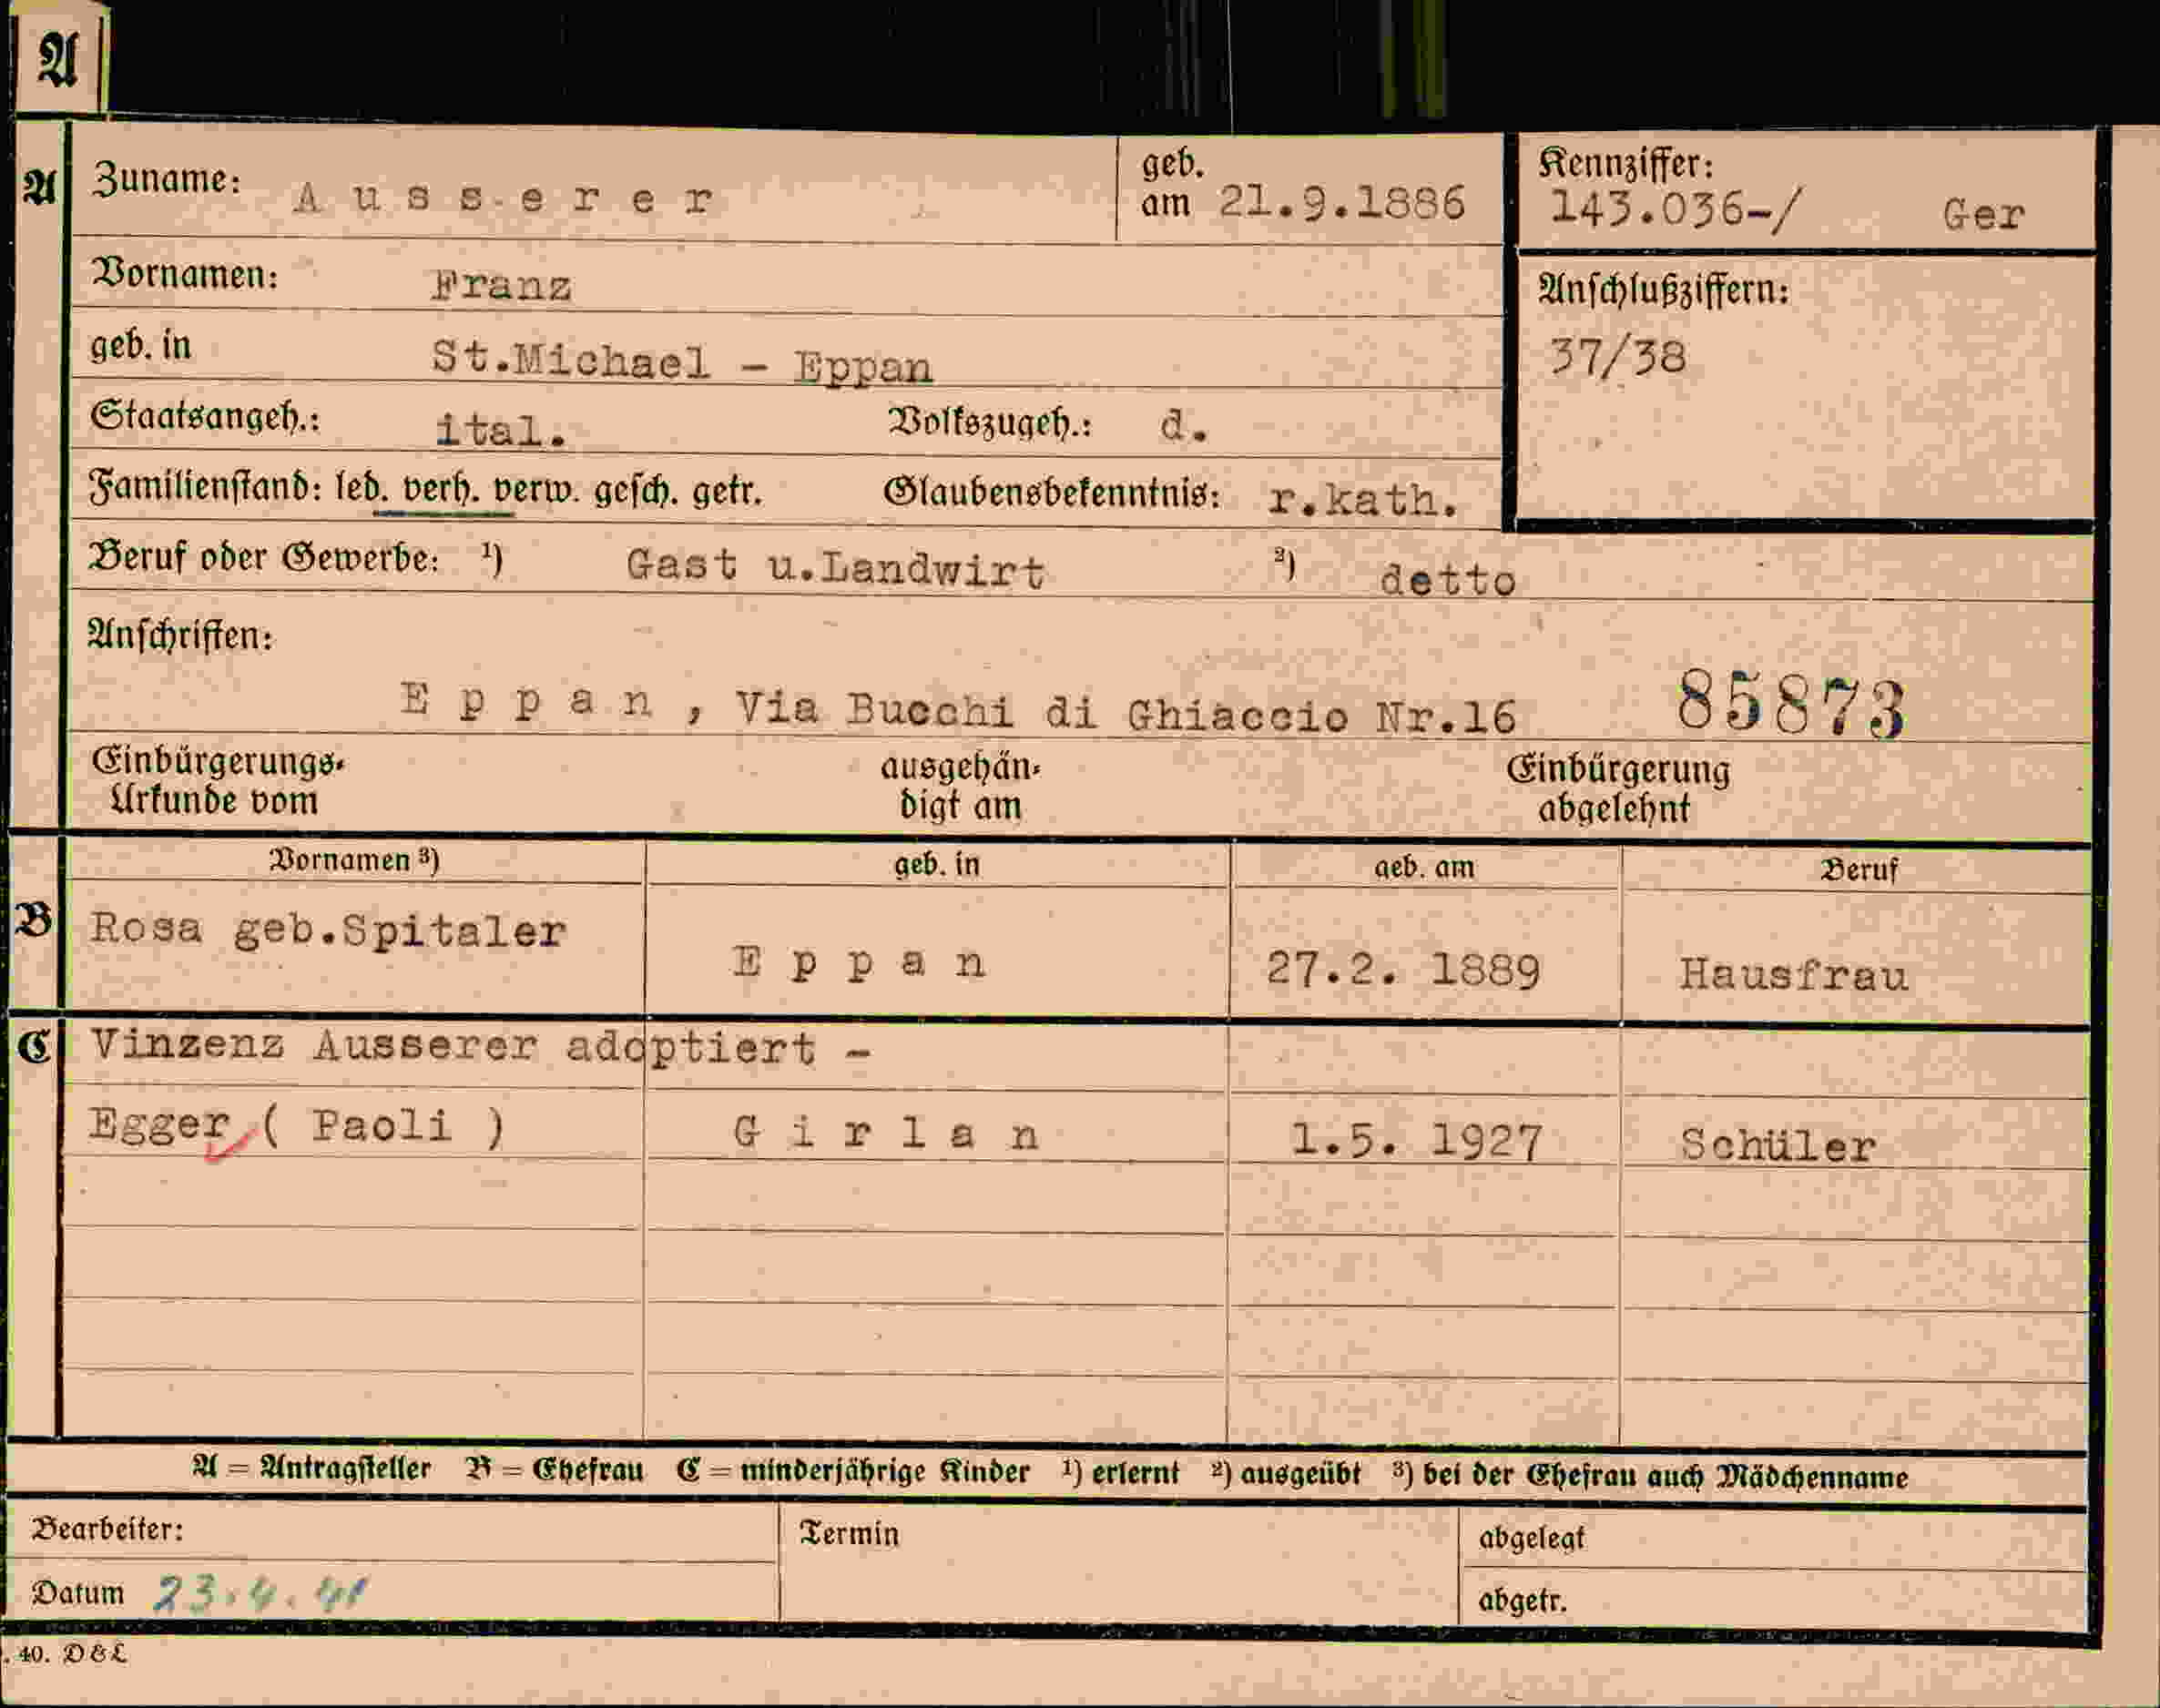 A
A Zuname: A u s s e r e r geb. am 21.9.1886 Kennziffer: 143.036-/ Ger
Vornamen: Franz
Anschlußziffern:
geb. in St.Michael - Eppan
37/38
Staatsangeh.: ital. Volkszugeh.: d.
Familienstand: led. verh. verw. gesch. getr. Glaubensbekenntnis: r.kath.
Beruf oder Gewerbe: ¹) Gast u.Landwirt ²) detto
Anschriften:
E p p a n , Via Bucchi di Ghiaccio Nr.16 85873
Einbürgerungs- ausgehän- Einbürgerung
Urkunde vom digt am abgelehnt
Vornamen ³) geb. in geb. am Beruf
B Rosa geb.Spitaler E p p a n 27.2. 1889 Hausfrau
C Vinzenz Ausserer adoptiert -
Egger ( Paoli ) G i r l a n 1.5. 1927 Schüler
A = Antragsteller B = Ehefrau C = minderjährige Kinder ¹) erlernt ²) ausgeübt ³) bei der Ehefrau auch Mädchenname
Bearbeiter: Termin abgelegt
Datum 23.4.41 abgetr.
. 40. D & L